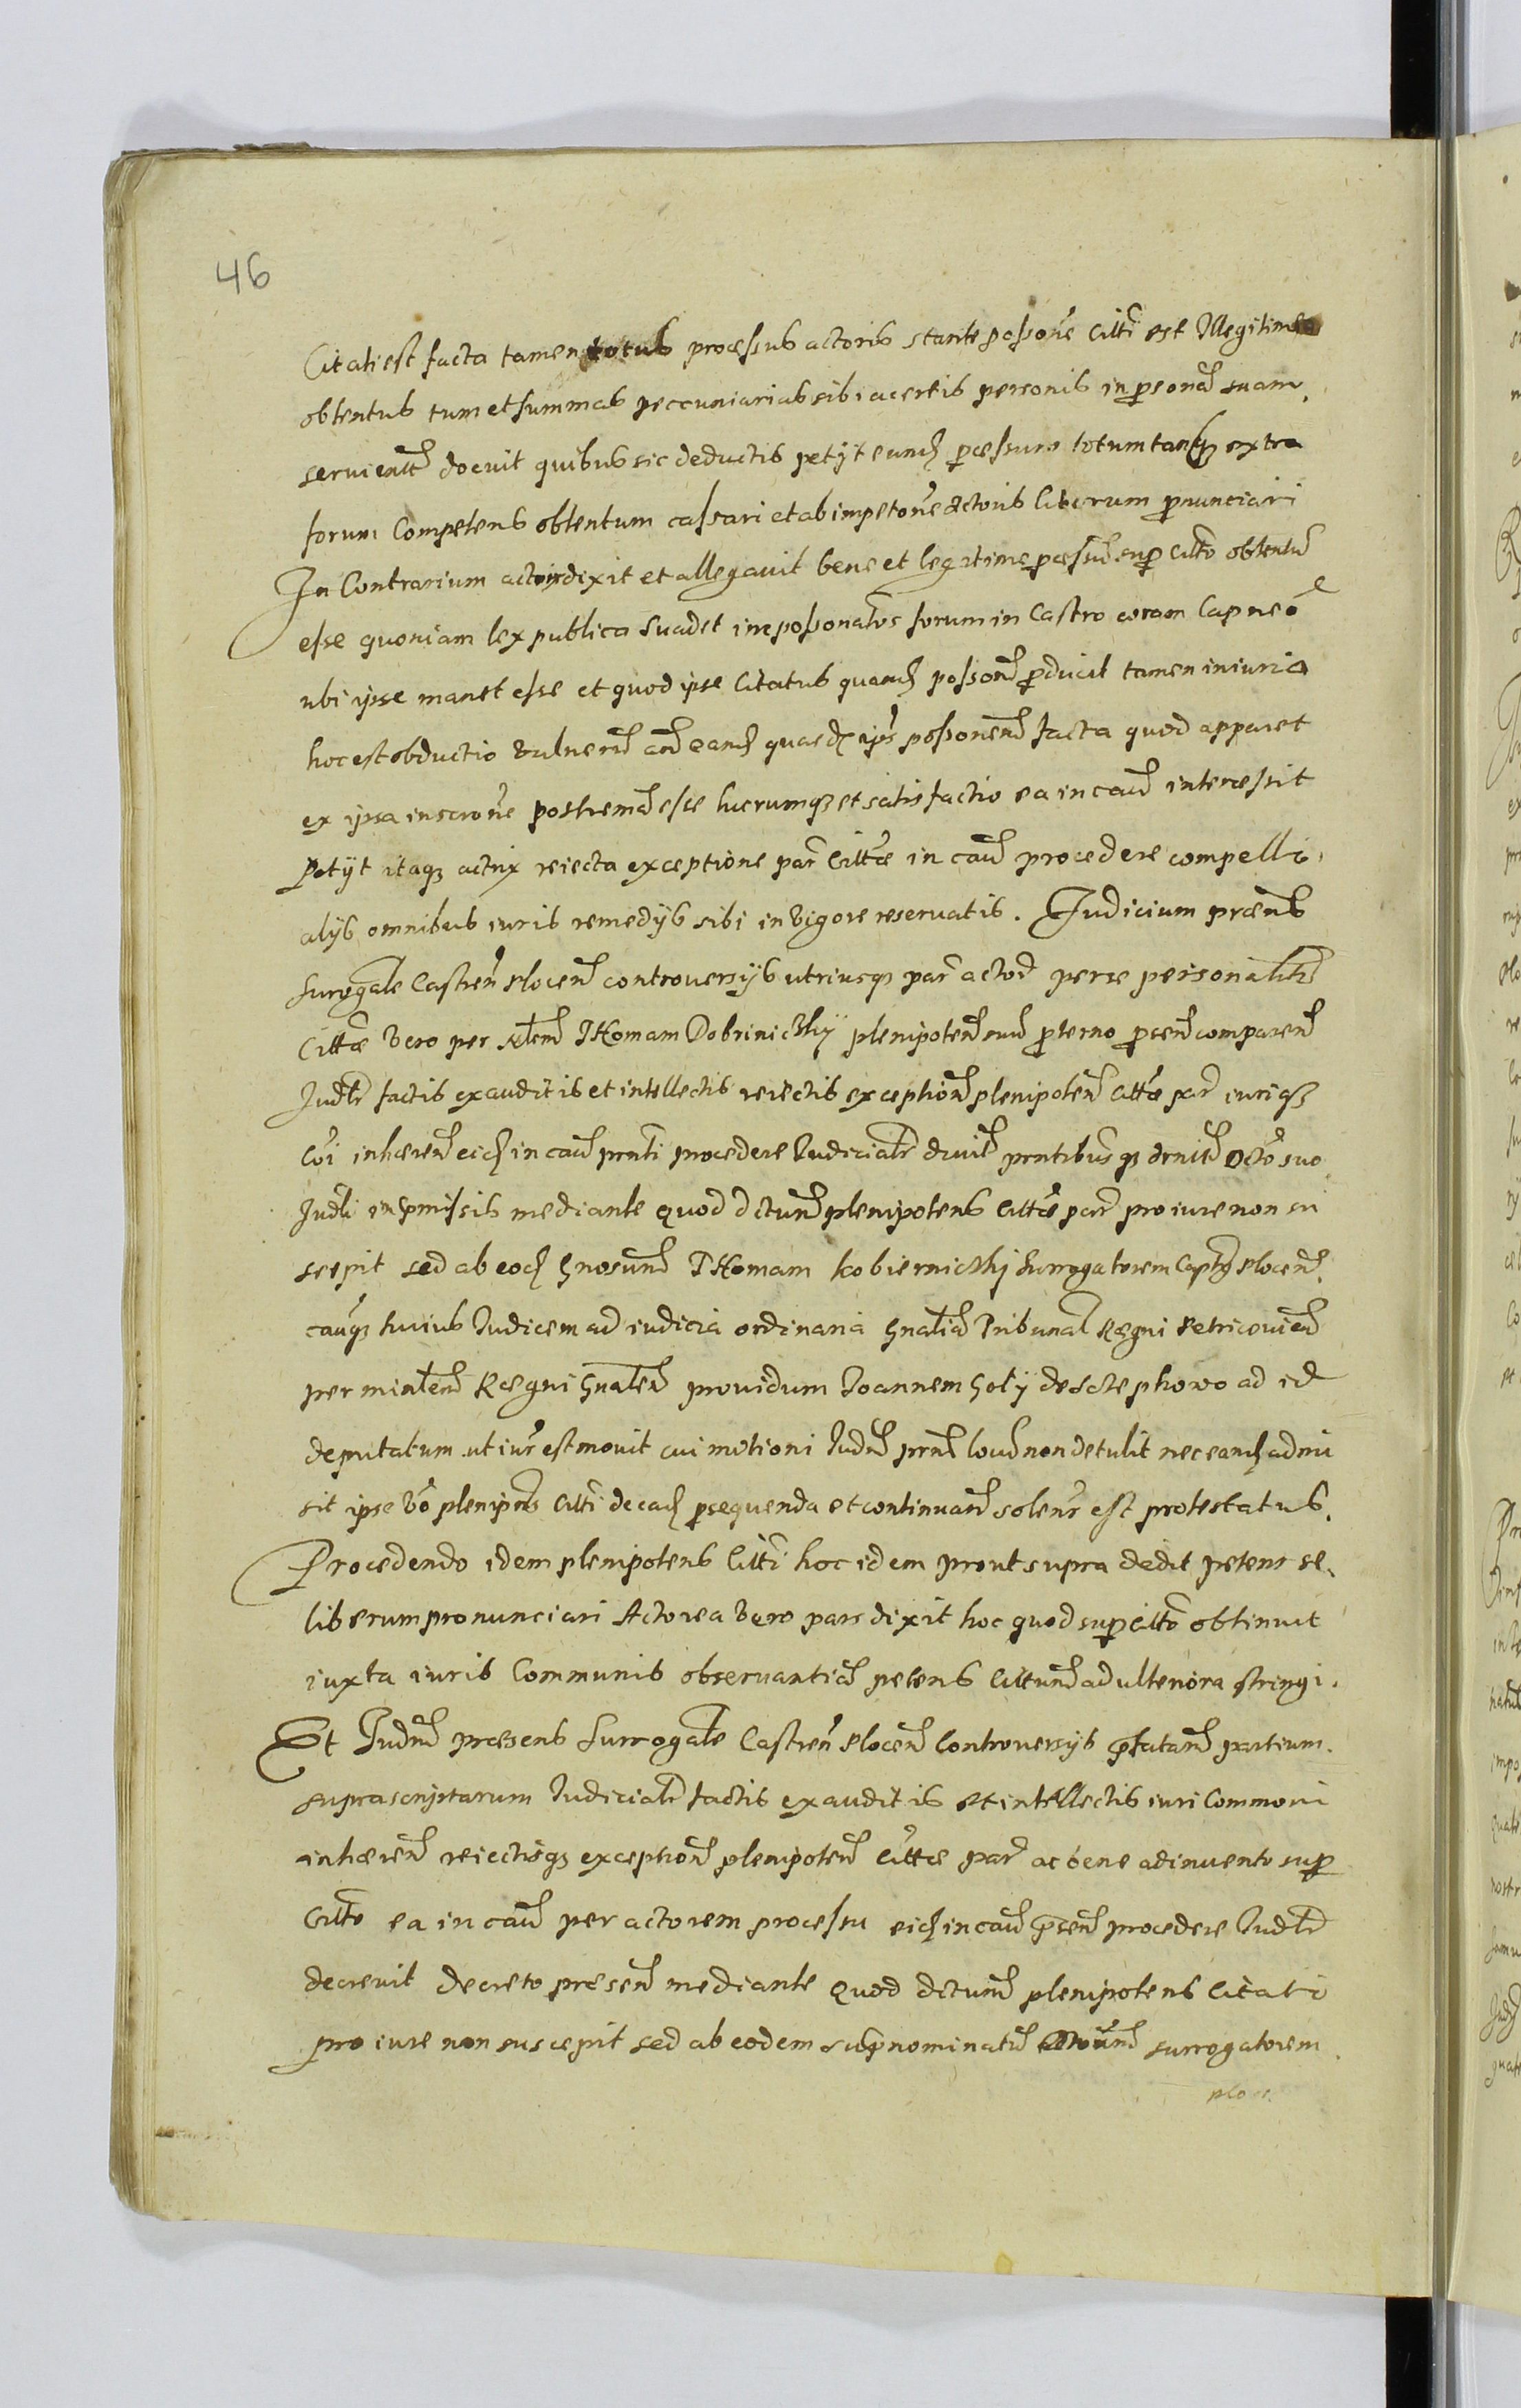 46
Citati est facta tamen totus processus actoris stante possone Citti est Illegitime
obtentus tum et summas peccuniarias sibi a certis personis in personã suam
servientẽ docuit quibus sic deductis petijt eund processum totum tanq extra
forum Competens obtentum cassari et ab impetone Actoris liberum pnunciari
In Contrarium actrix dixit et allegavit bene et legitime pcessũ sup Citto obtentũ
esse quoniam lex publica suadet impossonatos forum in Castro coram Capneo
ubi ipse manet esse et quod ipse Citatus quand possonẽ pducit tamen iniuria
hoc est obductio vulnerũ ante eand possonem facta quod apparet
ex ipsa inscrone postremã esse lucrumq et satisfactio ea in cau intercessit
Petijt itaq actrix reiecta exceptione par Citte in cau procedere compelli
alijs omnibus iuris remedijs sibi in vigore reservatis. Judicium præns
Surrogale Castren Plocen controversijs utriusq par actor per se personalitr
Cittæ vero per Thomam Dobriniczkÿ plenipoten suũ p terno pcen comparen
Judlr factis exauditis et intellectis reiectis exception plenipoten Cittæ par iuriq
Coi inhæren eid in cau prnti procedere Judicialr
Judli in pmissis mediante quod dctum plenipotens Cittæ par pro iure non su
scepit sed ab eod Gnosum Thomam Kobierniczki Surrogatorem Capt Plocen
cauq huius Judicem ad iudicia ordinaria Gnalia Tribunal Regni Petricovien
per minlem Regni Gnalem providum Joannem Goły de ad id
deputatum ut iur est movit cui motioni Judm prns locũ non detulit nec eand admi
sit ipse vo plenipons Citti de ead psequenda et continuan solenr est protestatus.
Procedendo idem plenipotens Citti hoc idem prout supra dedit petens se
liberum pronunciari Actorea vero pars dixit hoc quod sup Citto obtinuit
iuxta iuris Communis observantiã petens Cittum ad ulteriora stringi.
Et Judm præsens Surrogale Castren Plocen Controversijs pfatarũ partium
suprascriptarum Judicialr factis exauditis et intellectis iuri Communi
inhæren reiectisq exception plenipoten Cittæ par ac bene adinvento sup
Citto ea in cau per actorem processu eid in cau psen procedere Judlr
decrevit decreto præsen mediante Quod dctum plenipotens Citati
pro iure non suscepit sed ab eodem supnominatũ surrogatorem